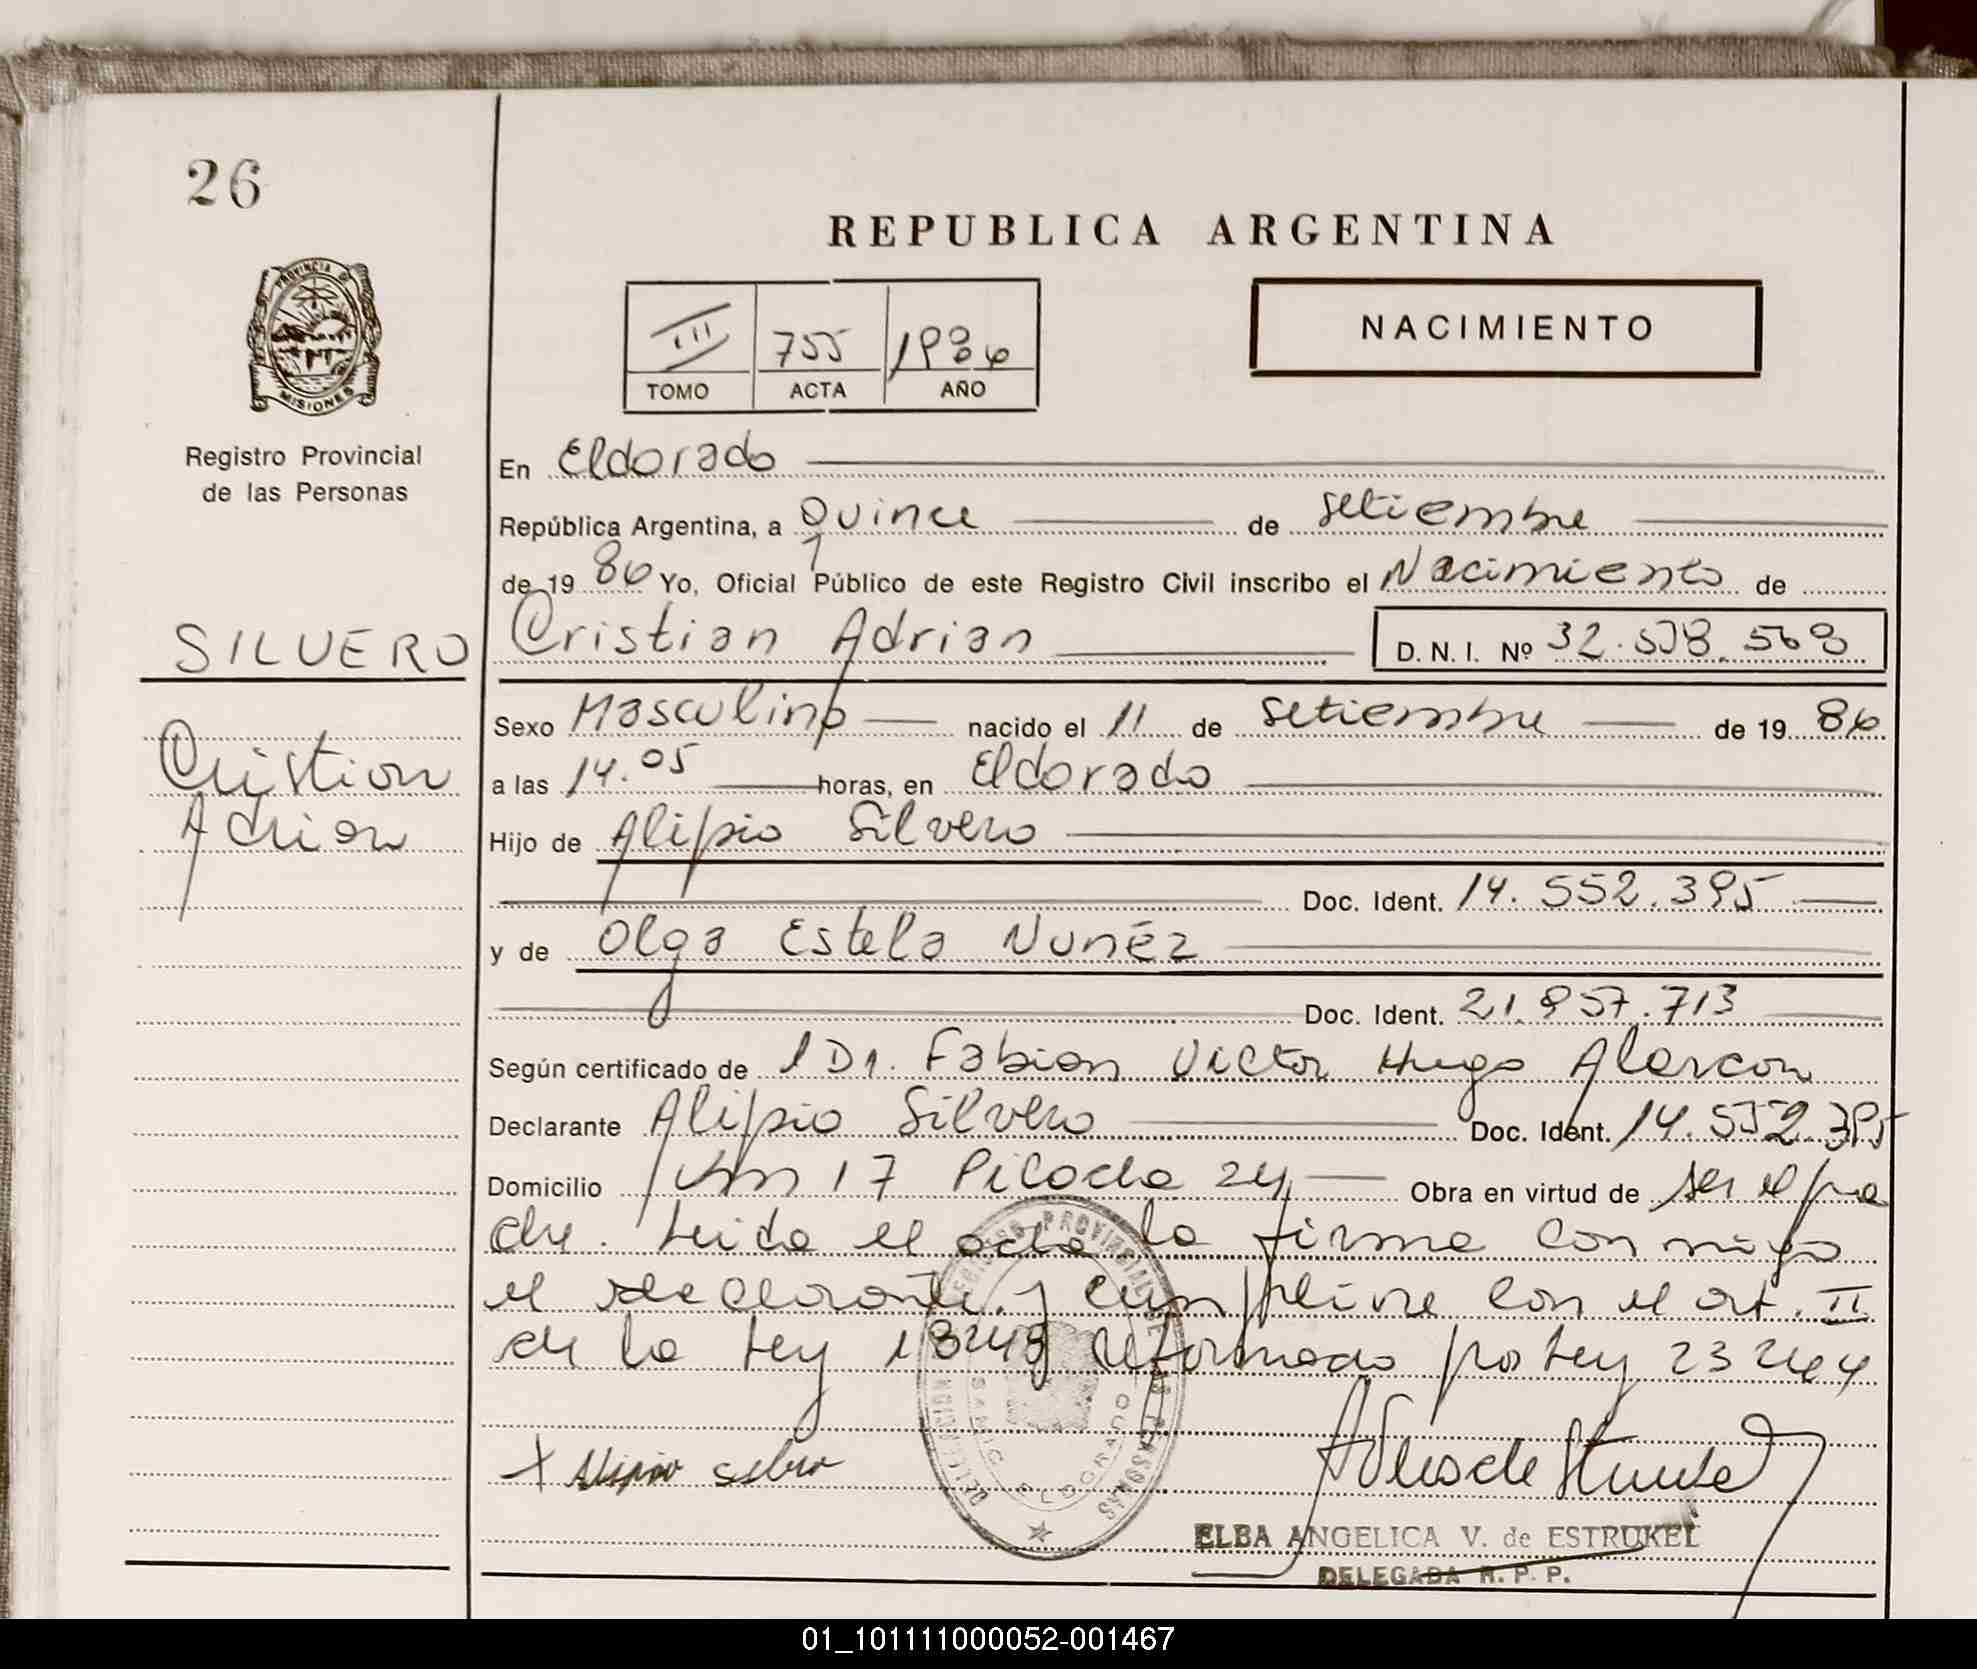 26
REPUBLICA ARGENTINA
PROVINCIA D
MISIONES
Registro Provincial
de las Personas
III 755 1986
TOMO ACTA AÑO
NACIMIENTO
En Eldorado
República Argentina, a Quince de setiembre
de 19 86 Yo, Oficial Público de este Registro Civil inscribo el Nacimiento de
SILVERO
Cristian Adrian D. N. I. Nº 32.538.568
Cristian
Adrian
Sexo Masculino nacido el 11 de setiembre de 19 86
a las 14.05 horas, en Eldorado
Hijo de Alipio Silvero
Doc. Ident. 14.552.395
y de Olga Estela Nunéz
Doc. Ident. 21.957.713
Según certificado de l Dr. Fabian Victor Hugo Alarcon
Declarante Alipio Silvero Doc. Ident. 14.552.395
Domicilio Km 17 Picada 24 Obra en virtud de ser el pa
dre. Leida el acta la firma con migo
el declarante. y cumplire con el art. II
de la Ley 18248 reformada por Ley 23264
REGISTRO PROVINCIAL DE LAS PERSONAS
DELEGACION
SAMIC ELDORADO
X Alipio silvero
ELBA ANGELICA V. de ESTRUKEL
DELEGADA R. P. P.
01_101111000052-001467